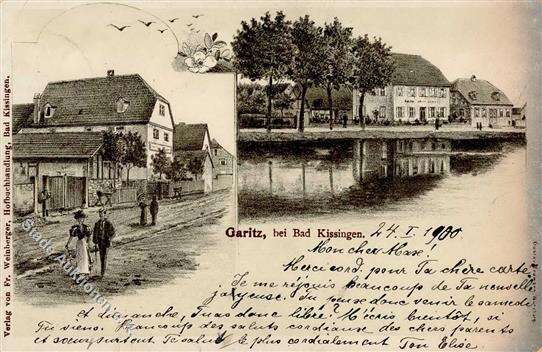 Verlag von Fr. Weinberger, Hofbuchhandlung, Bad Kissingen.
Garitz, bei Bad Kissingen.
24. I. 1900
Mon cher Max!
Merci cord. pour Ta chère carte,
Je me réjouis beaucoup de Ta nouvelle
joyeuse. Tu pense donc venir le samedi
et dimanche, Tu as donc libre? M'écris bientôt, si
Tu viens. Beaucoup des saluts cordiaux des chers parents
et soeurs surtout Te salue le plus cordialement Ton Elise.